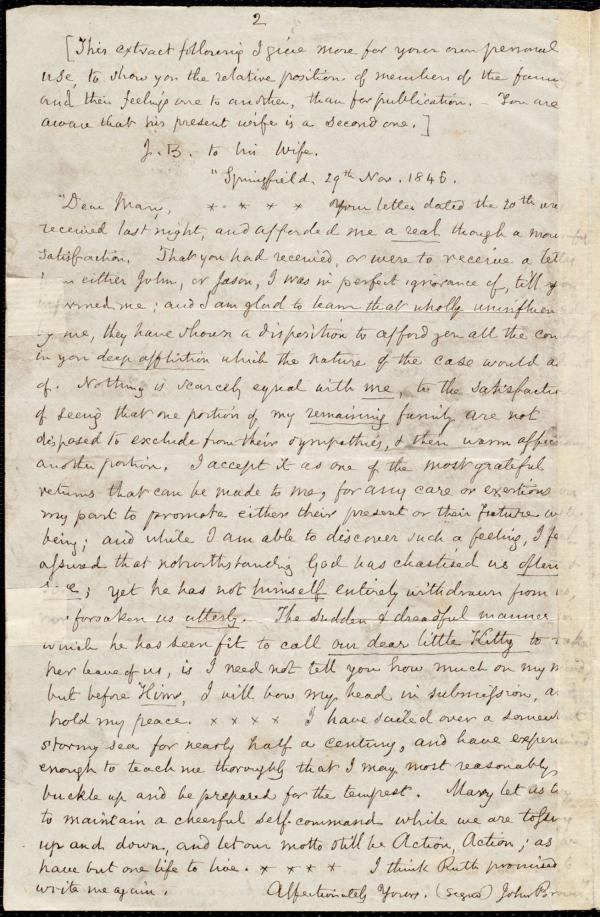 2
[This extract following I give more for your own personal
use, to show you the relative position of members of the
and their feelings one to another, than for publication. – You are
aware that his present wife is a second one.]
J. B. to his Wife.
"Springfield. 29th Nov. 1846.
"Dear Mary, × × × × Your letter dated the 20th
received last night, and afforded me a real though a
satisfaction. That you had received, or were to receive a
either John, or Jason, I was in perfect ignorance of, till
me; and I am glad to learn that wholly
me, they have shown a disposition to afford you all the
in you deep affliction which the nature of the case would
of. Nothing is scarcely equal with me, to the
of seeing that one portion of my remaining family are not
disposed to exclude from their sympathies, & their warm
another portion. I accept it as one of the most grateful
returns that can be made to me, for any care or exertions
my part to promote either their present or their future
being; and while I am able to discover such a feeling, I
assured that notwithstanding God has chastised us often
; yet he has not himself entirely withdrawn from
forsaken us utterly. The sudden & dreadful manner
which he has seen fit to call our dear little Kitty to
her leave of us, is I need not tell you how much on my
but before Him, I will bow my head in submission,
hold my peace. × × × × I have sailed over a
stormy sea for nearly half a century, and have
enough to teach me thoroughly that I may most reasonably
buckle up and be prepared for the tempest. Mary let us
to maintain a cheerful self-command while we are
up and down, and let our motto still be Action, Action; as
have but one life to live. × × × × I think Ruth promised
write me again. Affectionately Yours. (signed) John